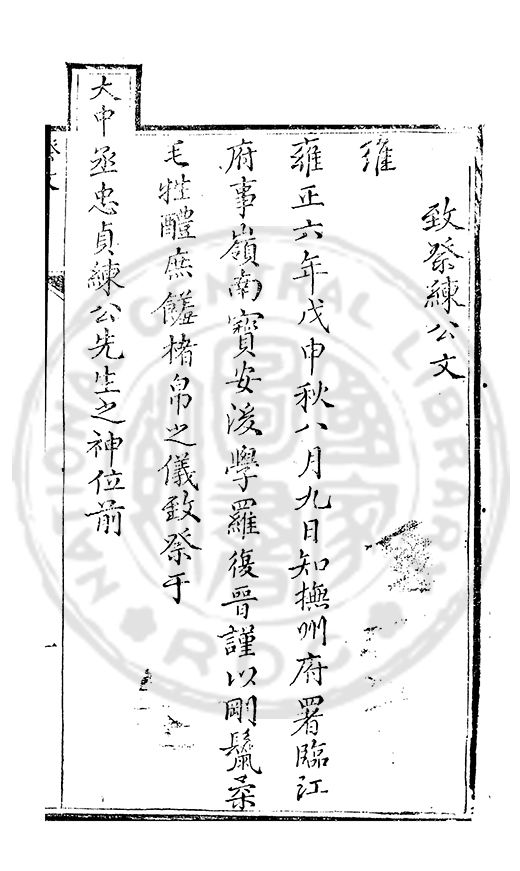 致祭練公文
維
雍正六年戊申秋八月九日知撫州府署臨江
府事嶺南寶安後學羅復晉謹以剛鬣柔
毛牲醴庶饈楮帛之儀致祭于
大中丞忠貞練公先生之神位前
祭文
一
NATIONAL CENTRAL LIBRARY
R.O.C